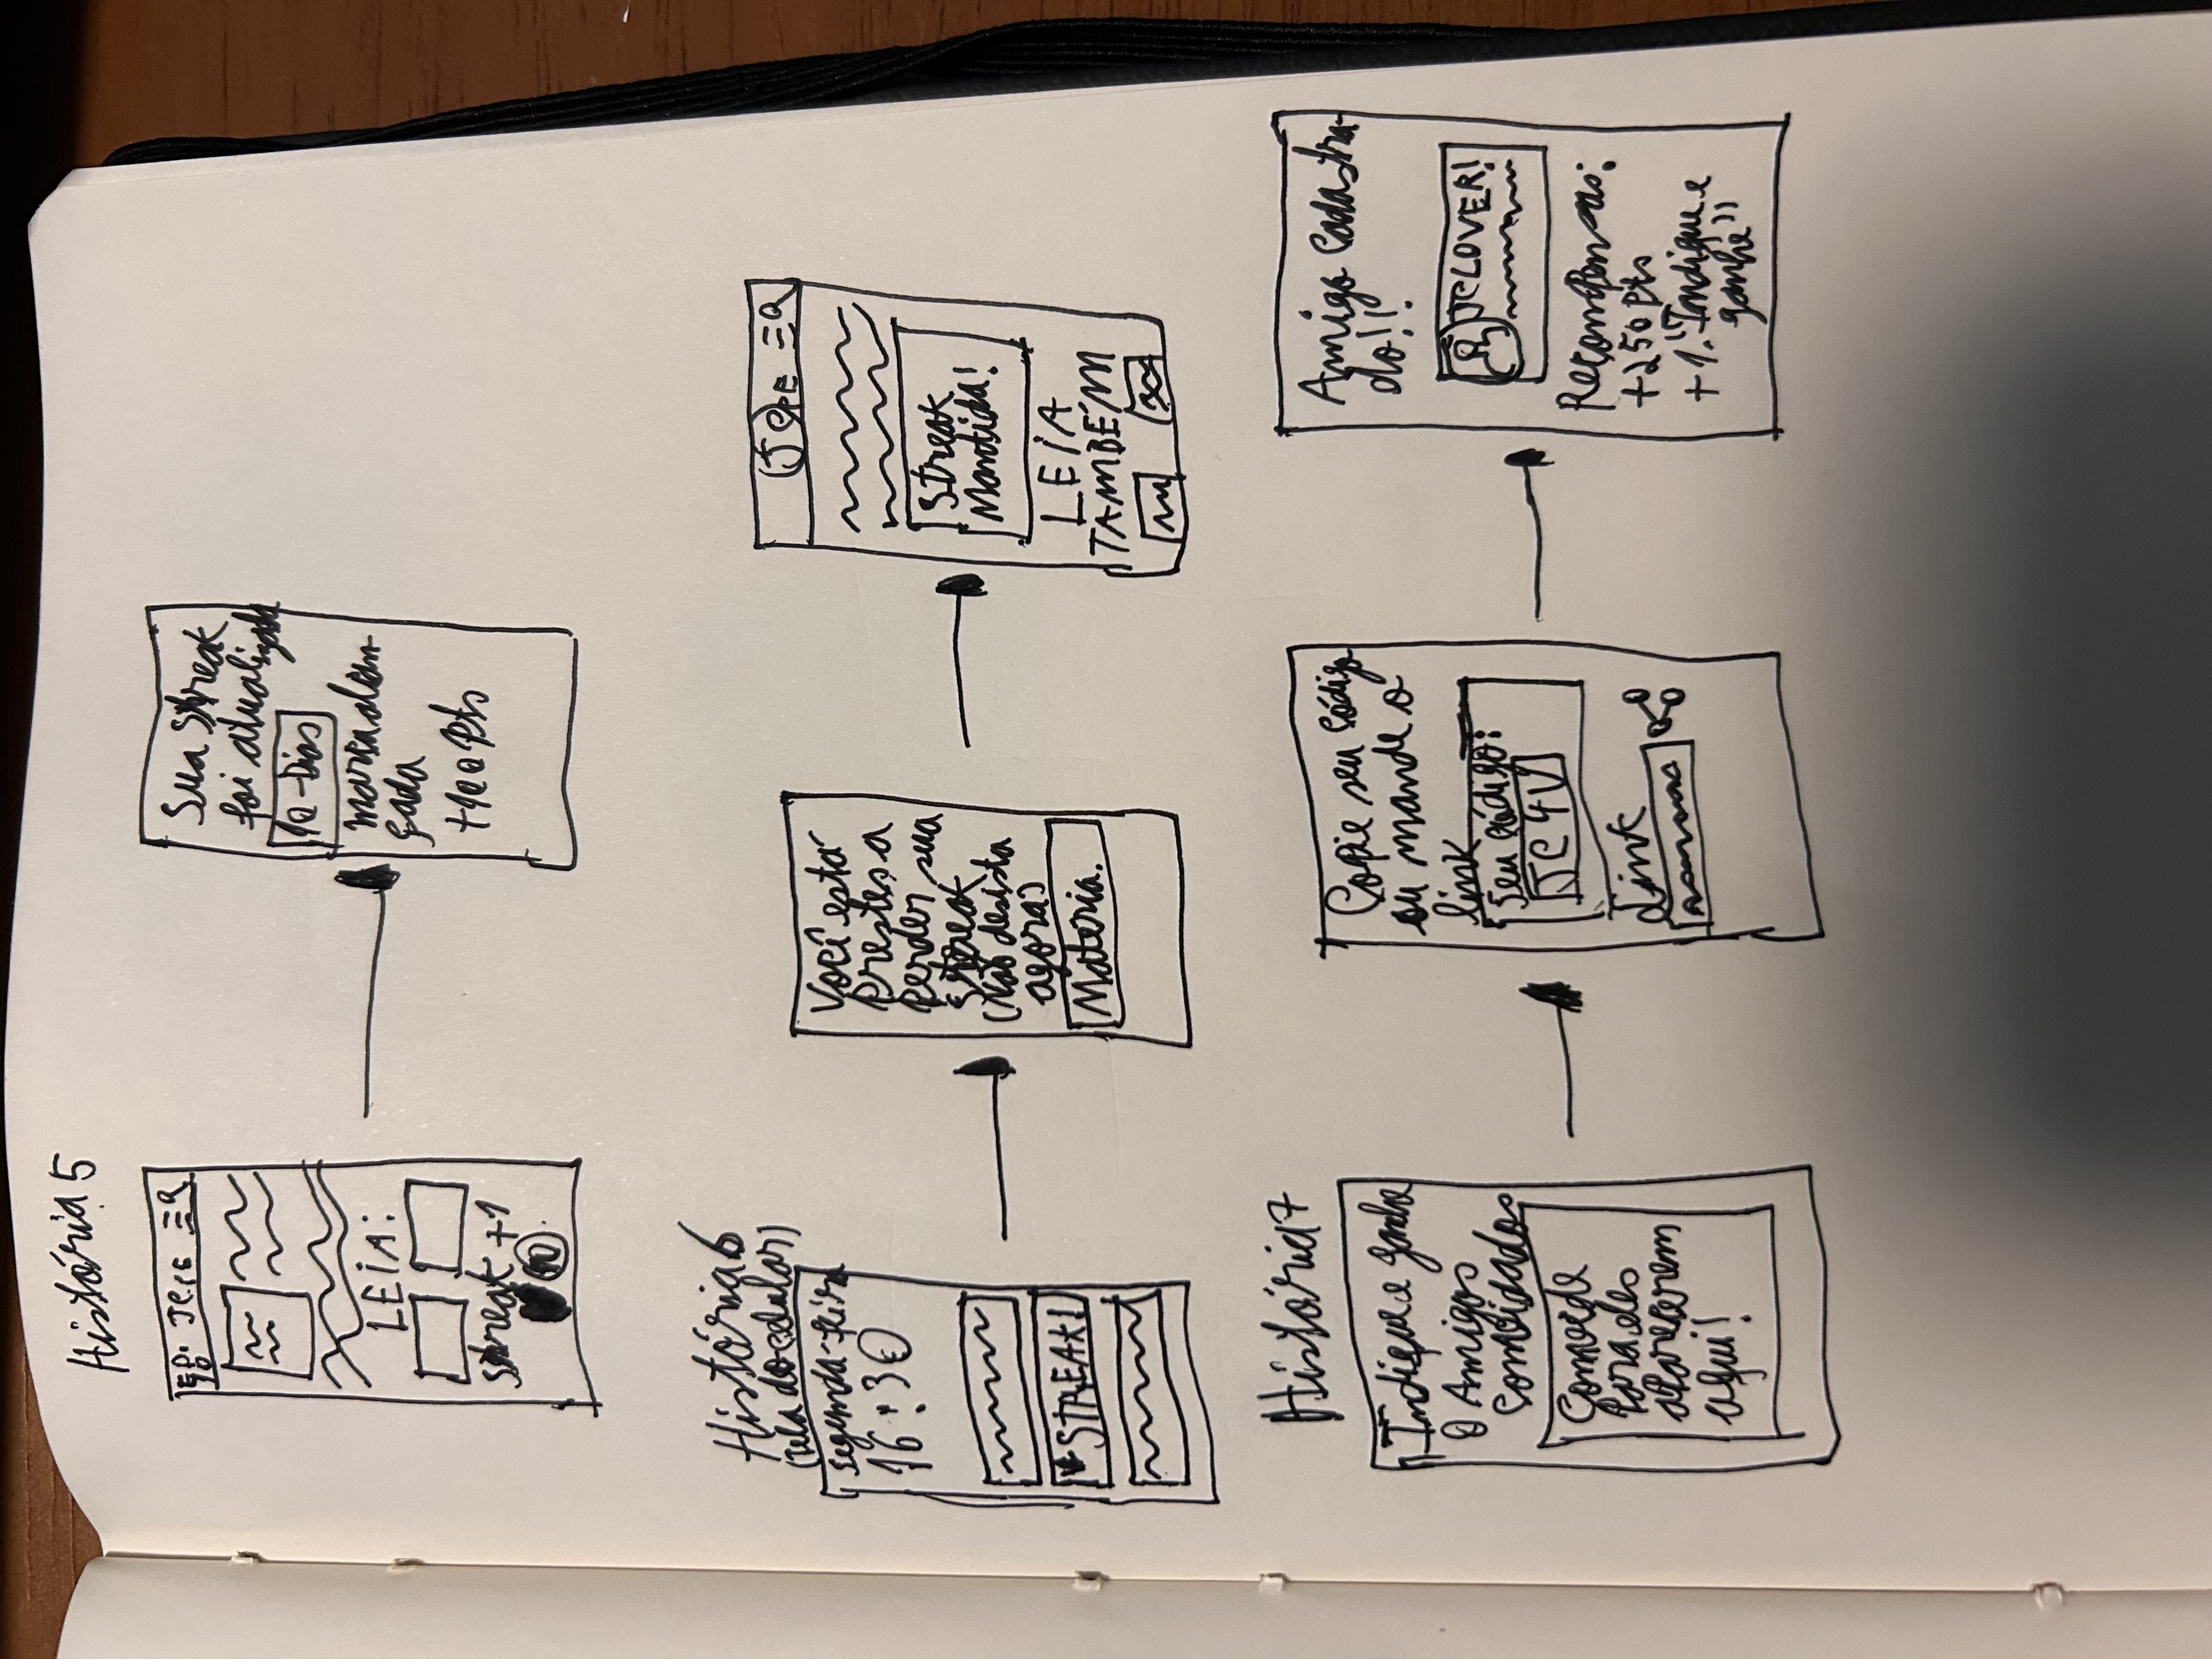 História 5
JC PE
LEIA:
Streak +1
10
Sua Streak
foi atualizada
10 - Dias
marca alcan-
çada
+100 Pts
História 6
(tela do celular)
segunda-feira
16:30
STREAK!
Você está
Prestes a
Perder sua
Streak
(Não desista
agora)
Matéria.
JC PE
Streak
Mantida!
LEIA
TAMBÉM
História 7
Indique e ganhe
0 Amigos
Convidados
Convide
Para eles
aParecerem
aqui!
Copie seu código
ou mande o
link
Seu código:
JC4V
Link
Amigo Cadastra-
do!!
JCLOVER!
Recompensas:
+250 Pts
+1 "Indique e
ganhe"